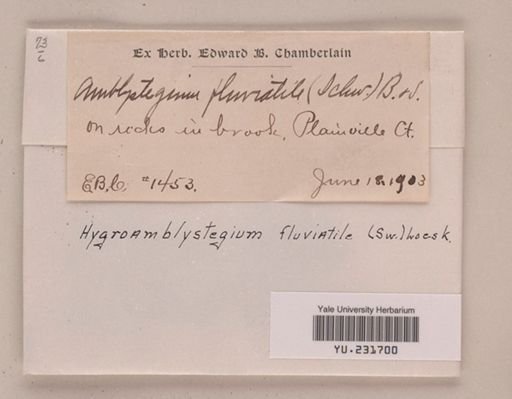 73
6
Ex Herb. Edward B. Chamberlain
Amblystegium fluviatile (Schw.) B. & S.
on rocks in brook, Plainville Ct.
E.B.C. #1453.
June 18, 1903
Hygroamblystegium fluviatile (Sw.) Loesk.
Yale University Herbarium
YU.231700